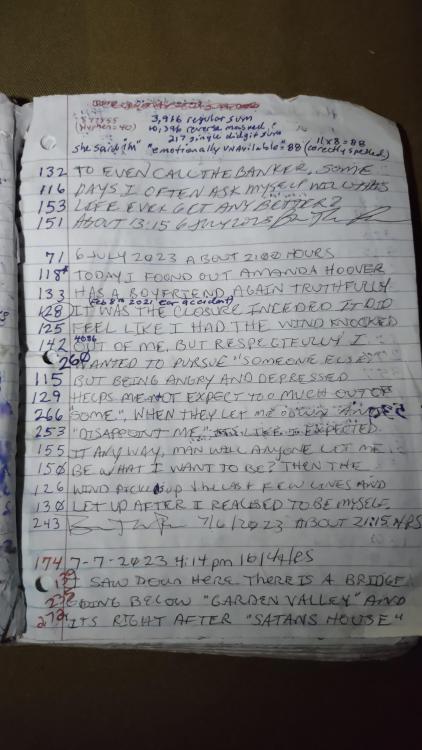 3,916 regular sum
(Hyphen=40) 10,396 reverse
217 single didgit sum
11x8=88
she said im "emotionally unavailable=88 (correctly spelled)
132 TO EVEN CALL THE BANKER, SOME
116 DAYS I OFTEN ASK MYSELF WILL THIS
153 LIFE EVER GET ANY BETTER?
151 ABOUT 13:15 6 JULY 2023
71 6 JULY 2023 ABOUT 21:00 HOURS
118 TODAY I FOUND OUT AMANDA HOOVER
133 HAS A BOYFRIEND AGAIN TRUTHFULLY
Feb 8th 2021 car accident)
128 IT WAS THE CLOSURE I NEEDED IT DID
125 FEEL LIKE I HAD THE WIND KNOCKED
4096
142 OUT OF ME, BUT RESPECTFULLY I
260 WANTED TO PURSUE "SOMEONE ELSE"
115 BUT BEING ANGRY AND DEPRESSED
129 HELPS ME NOT EXPECT TOO MUCH OUT OF
266 SOME", WHEN THEY LET ME DOWN AND
253 "DISAPPOINT ME" LIKE IS EXPECTED
155 IT ANY WAY, MAN WILL ANYONE LET ME
150 BE WHAT I WANT TO BE? THEN THE
126 WIND PICKED UP THE LAST FEW LINES AND
130 LET UP AFTER I REALISED TO BE MYSELF.
243 7/6/2023 ABOUT 21:15 HRS
174 7-7-2023 4:14 pm 1614 HRS
I SAW DOWN HERE THERE IS A BRIDGE
GOING BELOW "GARDEN VALLEY" AND
ITS RIGHT AFTER "SATANS HOUSE"